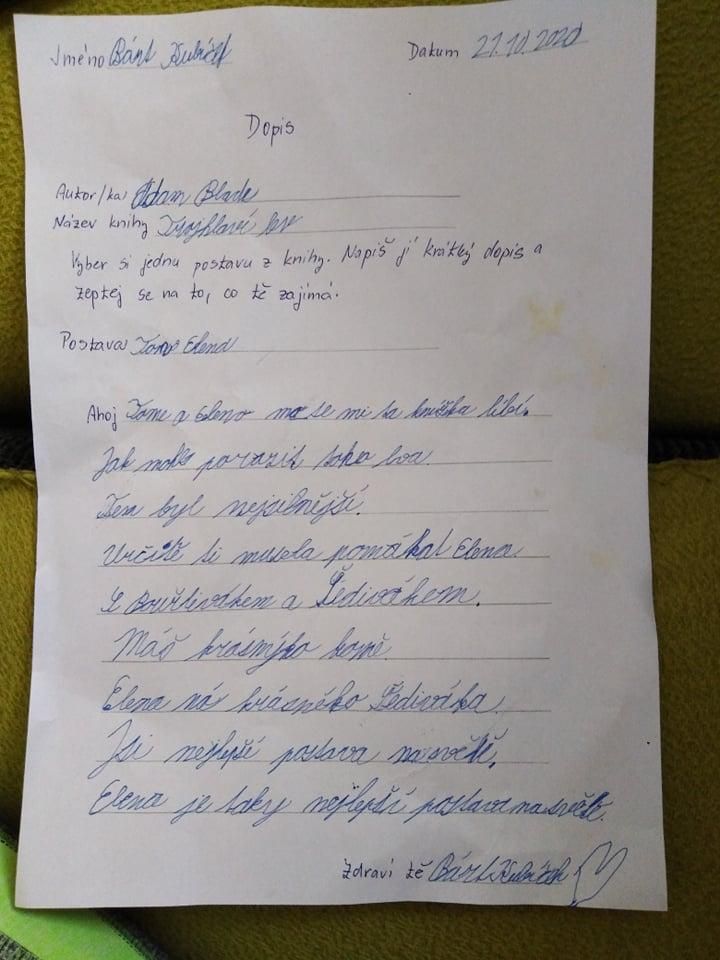 Jméno Bárt Kubíček Datum 21.10.2020
Dopis
Autor/ka Adam Blade
Název knihy Trojhlaví lev
Vyber si jednu postavu z knihy. Napiš jí krátký dopis a
zeptej se na to, co tě zajímá.
Postava Tom Elena
Ahoj Tome a Eleno se mi ta knížka líbí.
Jak porazit toho lva.
Ten byl nejsilnější.
Určitě ti musela pomáhat Elena
S Bouřlivákem a Šedivákem.
Máš krásnýho koně.
Elena má krásného Šediváka.
Jsi nejlepší postava na světě.
Elena je taky nejlepší postava na světě.
Zdraví tě Bárt Kubíček